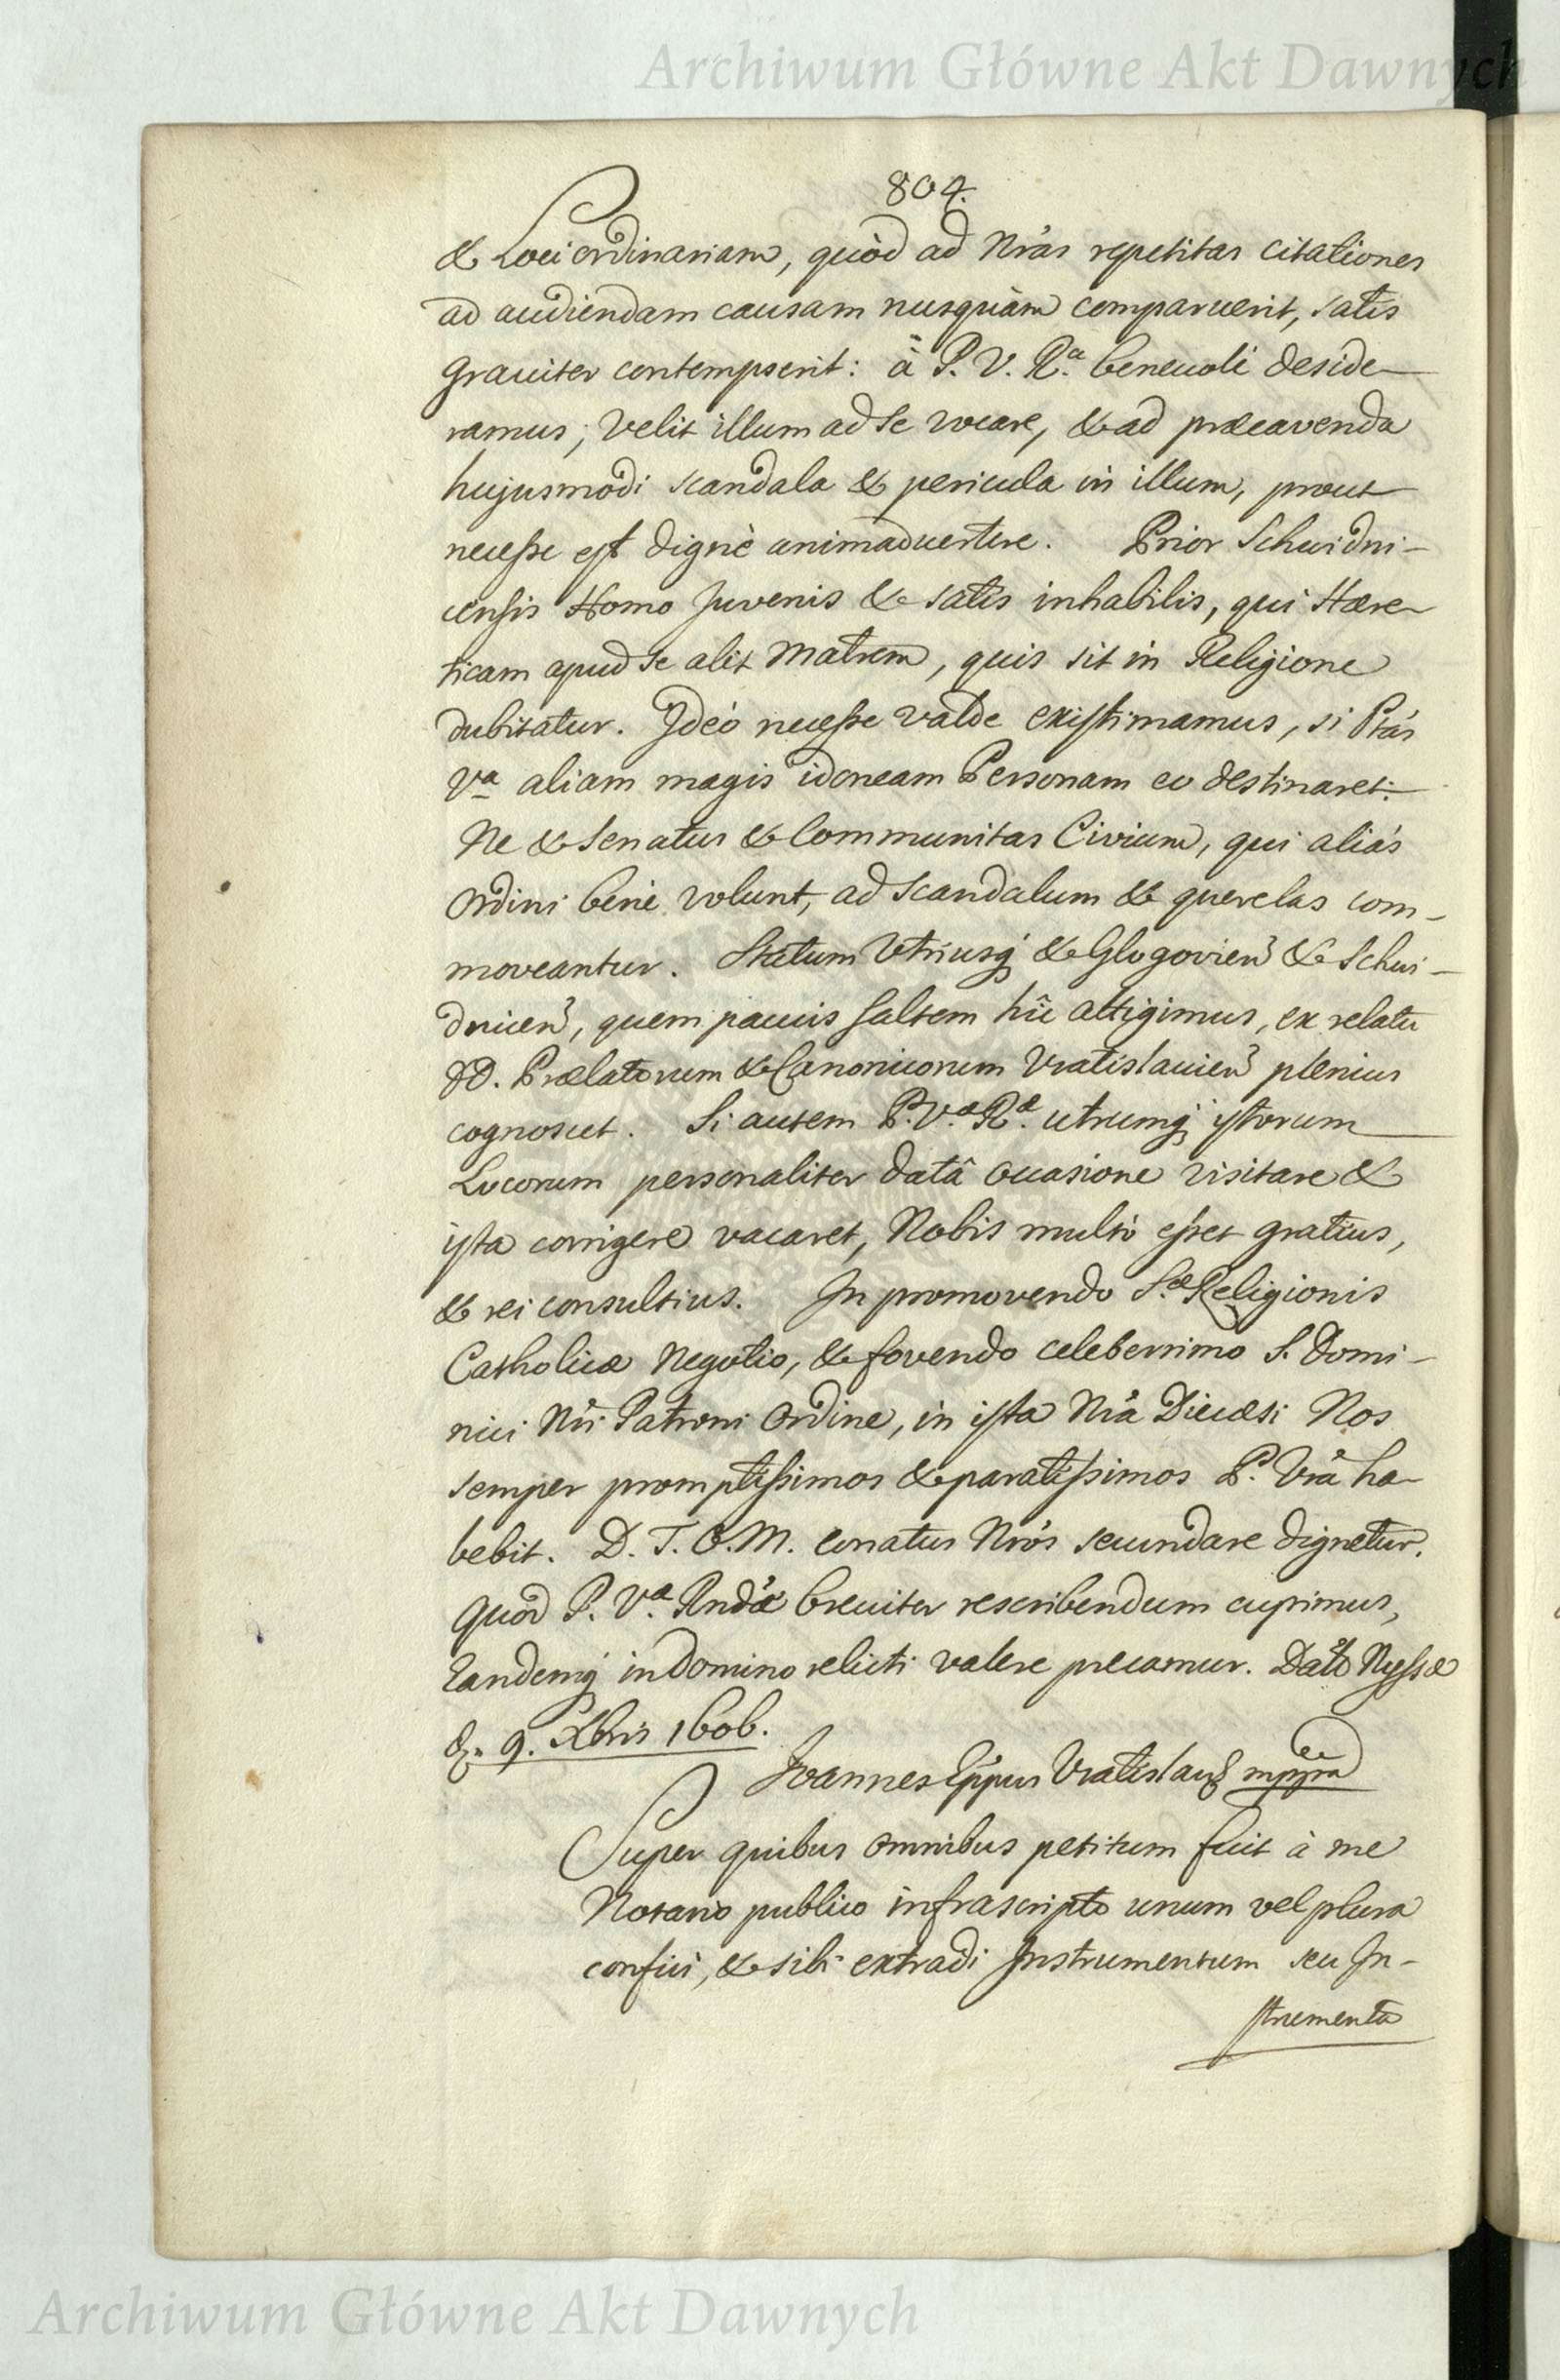 Archiwum Główne Akt Dawnych
804.
& Loci ordinariam, quòd ad Nrãs repetitas citationes
ad audiendam causam nusquàm comparuerit, satis
graviter contempserit: à P. V. R.ª benevoli deside-
ramus, velit illum ad se vocare, & ad præcavenda
hujusmodi scandala & pericula in illum, prout
necesse est dignè animadvertere. Prior Schwidni-
censis Homo Juvenis & satis inhabilis, qui Hære-
ticam apud se alit Matrem, quis sit in Religione
dubitatur. Ideò necesse valde existimamus, si Ptás
Vª aliam magis idoneam Personam eo destinaret.
Ne & Senatus & Communitas Civium, qui aliàs
Ordini benè volunt, ad scandalum & querelas com-
moveantur. Statum Utriusq & Glogovien & Schwi-
dnicen, quem paucis saltem hîc attigimus, ex relatu
DD. Prælatorum & Canonicorum Vratislavien plenius
cognoscet. Si autem P. Væ Ræ. utrumq istorum
Locorum personaliter datâ occasione visitare &
ista corrigere vacaret, Nobis multò esset gratius,
& rei consultius. In promovendo S.æ Religionis
Catholicæ Negotio, & fovendo celeberrimo S. Domi-
nici Nri Patroni Ordine, in ista Nrã Diœcesi Nos
semper promptissimos & paratissimos P. Vrã ha-
bebit. D. T. O. M. conatus Nrós secundare dignetur.
Quod P. Væ Rndæ breviter rescribendum cupimus,
Eandemq in Domino relicti valere precamur. Datt Nyssæ
d. 9. Xbris 1606.
Joannes Eppus Vratislav mppria
Super quibus omnibus petitum fuit à me
Notario publico infrascripto unum vel plura
confici, & sibi extradi Instrumentum seu In-
strumenta
Archiwum Główne Akt Dawnych